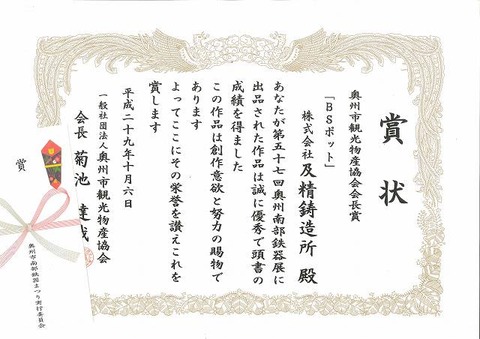 賞状
奥州市観光物産協会会長賞
「BSポット」
株式会社及精鋳造所 殿
あなたが第五十七回奥州南部鉄器展に
出品された作品は誠に優秀で頭書の
成績を得ました
この作品は創作意欲と努力の賜物で
あります
よってここにその栄誉を讃えこれを
賞します
平成二十九年十月六日
一般社団法人奥州市観光物産協会
会長 菊池 達哉
賞
奥州市南部鉄器まつり実行委員会